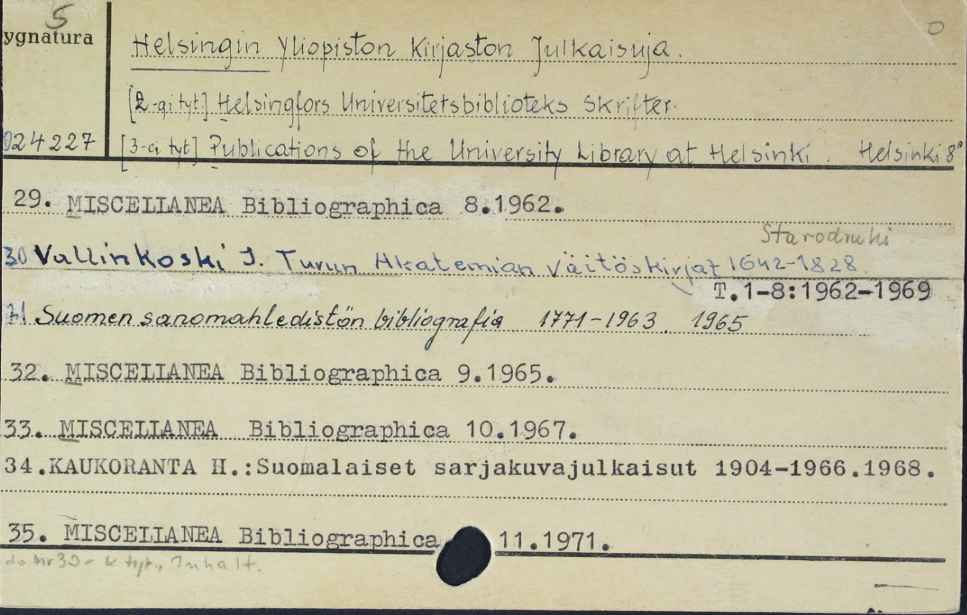 5
ygnatura
Helsingin Yliopiston Kirjaston Julkaisuja.
[2-gi tyt] Helsingfors Universitetsbiblioteks Skrifter.
024227 [3-ci tyt] Publications of the University Library at Helsinki. Helsinki 8°
29. MISCELLANEA Bibliographica 8.1962.
Starodruki
30 Vallinkoski J. Turun Akatemian Väitöskirjat 1642-1828
T.1-8:1962-1969
31 Suomen sanomahledistön bibliografia 1771-1963. 1965
32. MISCELLANEA Bibliographica 9.1965.
33. MISCELLANEA Bibliographica 10.1967.
34.KAUKORANTA H.:Suomalaiset sarjakuvajulkaisut 1904-1966.1968.
35. MISCELLANEA Bibliographica 11.1971.
do Nr 39 - tyt., Inhalt.